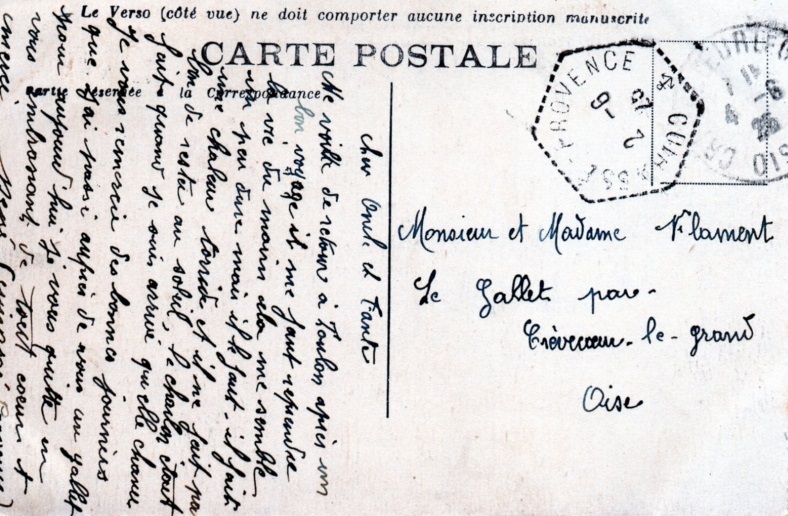 Le Verso (côté vue) ne doit comporter aucune inscription manuscrite
CARTE POSTALE
Partie réservée à la Correspondance
PROVENCE ⚓ CUIRASSÉ
25
2
6
Monsieur et Madame Filament
Le Gallet par
Crèvecœur-le-grand
Oise
Cher Oncle et Tante
Me voilà de retour à Toulon après un
bon voyage il me faut reprendre
la vie du marin cela me semble
un peu dure mais il le faut il fait
une chaleur torride et il ne fait pas
bon de rester au soleil, le charbon était
fait quand je suis arrivé quelle chance
Je vous remercie des bonnes journées
que j'ai passé auprès de vous au gallet
pour aujourd'hui je vous quitte en
vous embrassant de tout coeur et
merci René